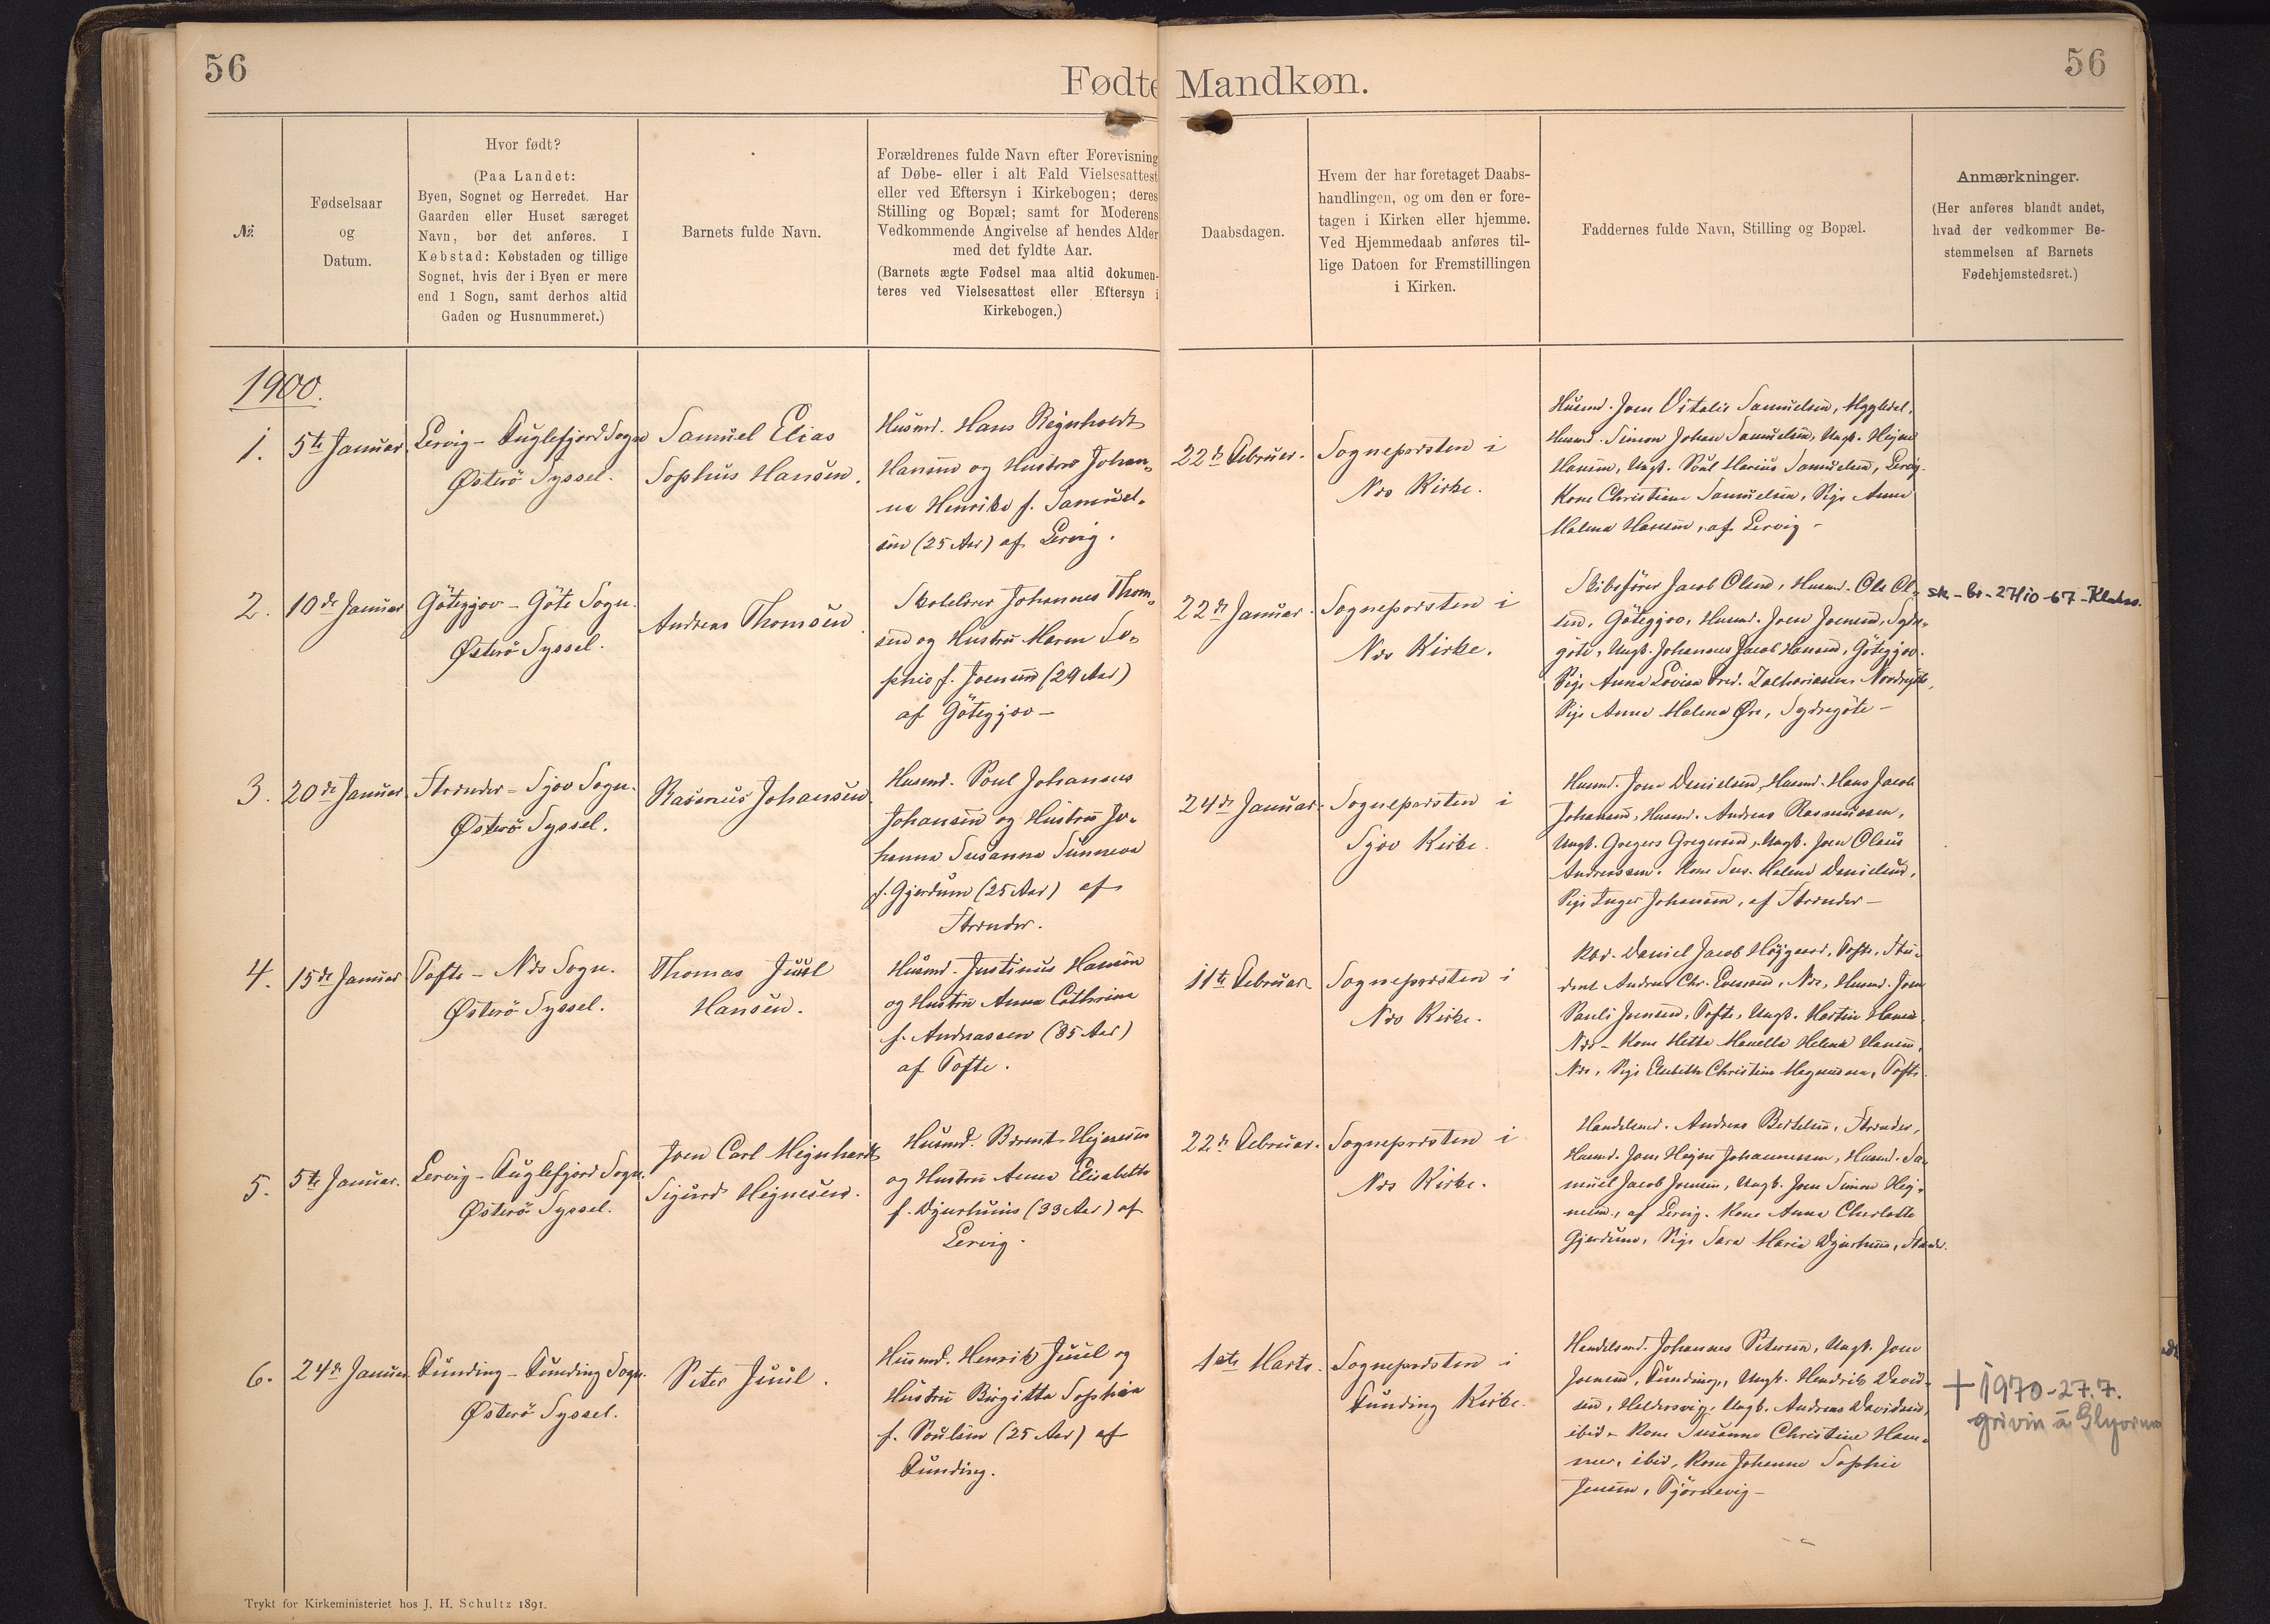 56
Fødte Mandkøn.
56
№
Fødselsaar
og
Datum.
Hvor født?
(Paa Landet:
Byen, Sognet og Herredet. Har
Gaarden eller Huset særeget
Navn, bør det anføres. I
Købstad: Købstaden og tillige
Sognet, hvis der i Byen er mere
end 1 Sogn, samt derhos altid
Gaden og Husnummeret.)
Barnets fulde Navn.
Forældrenes fulde Navn efter Forevisning
af Døbe- eller i alt Fald Vielsesattest
eller ved Eftersyn i Kirkebogen; deres
Stilling og Bopæl; samt for Moderens
Vedkommende Angivelse af hendes Alder
med det fyldte Aar.
(Barnets ægte Fødsel maa altid dokumen-
teres ved Vielsesattest eller Eftersyn i
Kirkebogen.)
Daabsdagen.
Hvem der har foretaget Daabs-
handlingen, og om den er fore-
tagen i Kirken eller hjemme.
Ved Hjemmedaab anføres til-
lige Datoen for Fremstillingen
i Kirken.
Faddernes fulde Navn, Stilling og Bopæl.
Anmærkninger.
(Her anføres blandt andet,
hvad der vedkommer Be-
stemmelsen af Barnets
Fødehjemstedsret.)
1900.
1.
5te Januar
Lervig - Fuglefjord Sogn
Østerö Syssel.
Samuel Elias
Sophus Hansen.
Husmd. Hans Reginholdt
Hansen og Hustru Johan-
ne Henrike f. Samuel-
sen (25 Aar) af Lervig.
22de Februar.
Sognepræsten i
Næs Kirke.
Husmd. Joen Vitalis Samuelsen,
Husmd. Simon Johan Samuelsen, Ungk. Hejne
Hansen, Ungk. Poul Marius Samuelsen, Lervig.
Kone Christiane Samuelsen, Pige Anne
Malena Hansen, af Lervig -
2.
10de Januar
Götegjov - Göte Sogn.
Østerö Syssel.
Andreas Thomsen
Skolelærer Johannes Thom-
sen og Hustru Maren So-
phie f. Joensen (29 Aar)
af Götegjov -
22de Januar.
Sognepræsten i
Næs Kirke.
Skibsfører Jacob Olsen, Husmd. Ole Ol-
sen, Götegjov, Husmd. Joen Joensen, Sydre-
göte, Ungk. Johannes Jacob Hansen, Götegjov.
Pige Anna Lovisa Fred. Zachariasen Nordregöte,
Pige Anne Malena Øre, Sydregöte -
sk-br-27/10-67-
3.
20de Januar
Strænder - Sjov Sogn.
Østerö Syssel.
Rasmus Johansen
Husmd. Poul Johannes
Johansen og Hustru Jo-
hanna Susanna Sunneva
f. Gjerdum (25 Aar) af
Strænder.
24de Januar.
Sognepræsten i
Sjov Kirke.
Husmd. Jone Danielsen, Husmd. Hans Jacob
Johansen, Husmd. Andreas Rasmussen,
Ungk. Gregers Gregersen, Ungk. Joen Olaus
Andreassen. Kone Sus. Helene Danielsen,
Pige Inger Johansen, af Strænder -
4.
15de Januar
Tofte - Næs Sogn.
Østerö Syssel.
Thomas Juul
Hansen.
Husmd. Justinus Hansen
og Hustru Anna Cathrine
f. Andreassen (35 Aar)
af Tofte.
11te Februar.
Sognepræsten i
Næs Kirke.
Rbd. Daniel Jacob Højgaard, Tofte, Stu-
dent Andreas Chr. Evensen, Næs, Husmd. Joen
Pauli Joensen, Tofte, Ungk. Martin Hansen
Næs - Kone Metta Helena Hansen,
Næs, Pige Elsebeth Christine Magnussen, Tofte.
5.
5te Januar.
Lervig - Fuglefjord Sogn.
Østerö Syssel.
Joen Carl Mejnhardt
Sigurd Hejnesen.
Husmd. Berent Hejnesen
og Hustru Anna Elisabeth
f. Djurhuus (33 Aar) af
Lervig.
22de Februar.
Sognepræsten i
Næs Kirke.
Handelsmd. Andreas Bertelsen, Strænder,
Husmd. Joen Hejne Johannessen, Husmd. Sa-
muel Jacob Joensen, Ungk. Joen Simon Hej-
nesen, af Lervig. Kone Anna Charlotte
Gjerdum, Pige Sara Maria Djurhuus,
6.
24de Januar.
Funding - Funding Sogn.
Østerö Syssel.
Peter Juul.
Husmd. Henrik Juul og
Hustru Birgitta Sophia
f. Poulsen (25 Aar) af
Funding.
1ste Marts.
Sognepræsten i
Funding Kirke.
Handelsmd. Johannes Petersen, Ungk. Joen
Joensen, Funding, Ungk. Hendrik David-
sen, Heldersvig, Ungk. Andreas Davidsen,
ibid - Kone Susanne Christine Ham-
mer, ibid, Kone Johanne Sophie
Jensen, Tjörnevig -
† 1970-27.7.
grivin á Glyvrum
Trykt for Kirkeministeriet hos J. H. Schultz 1891.